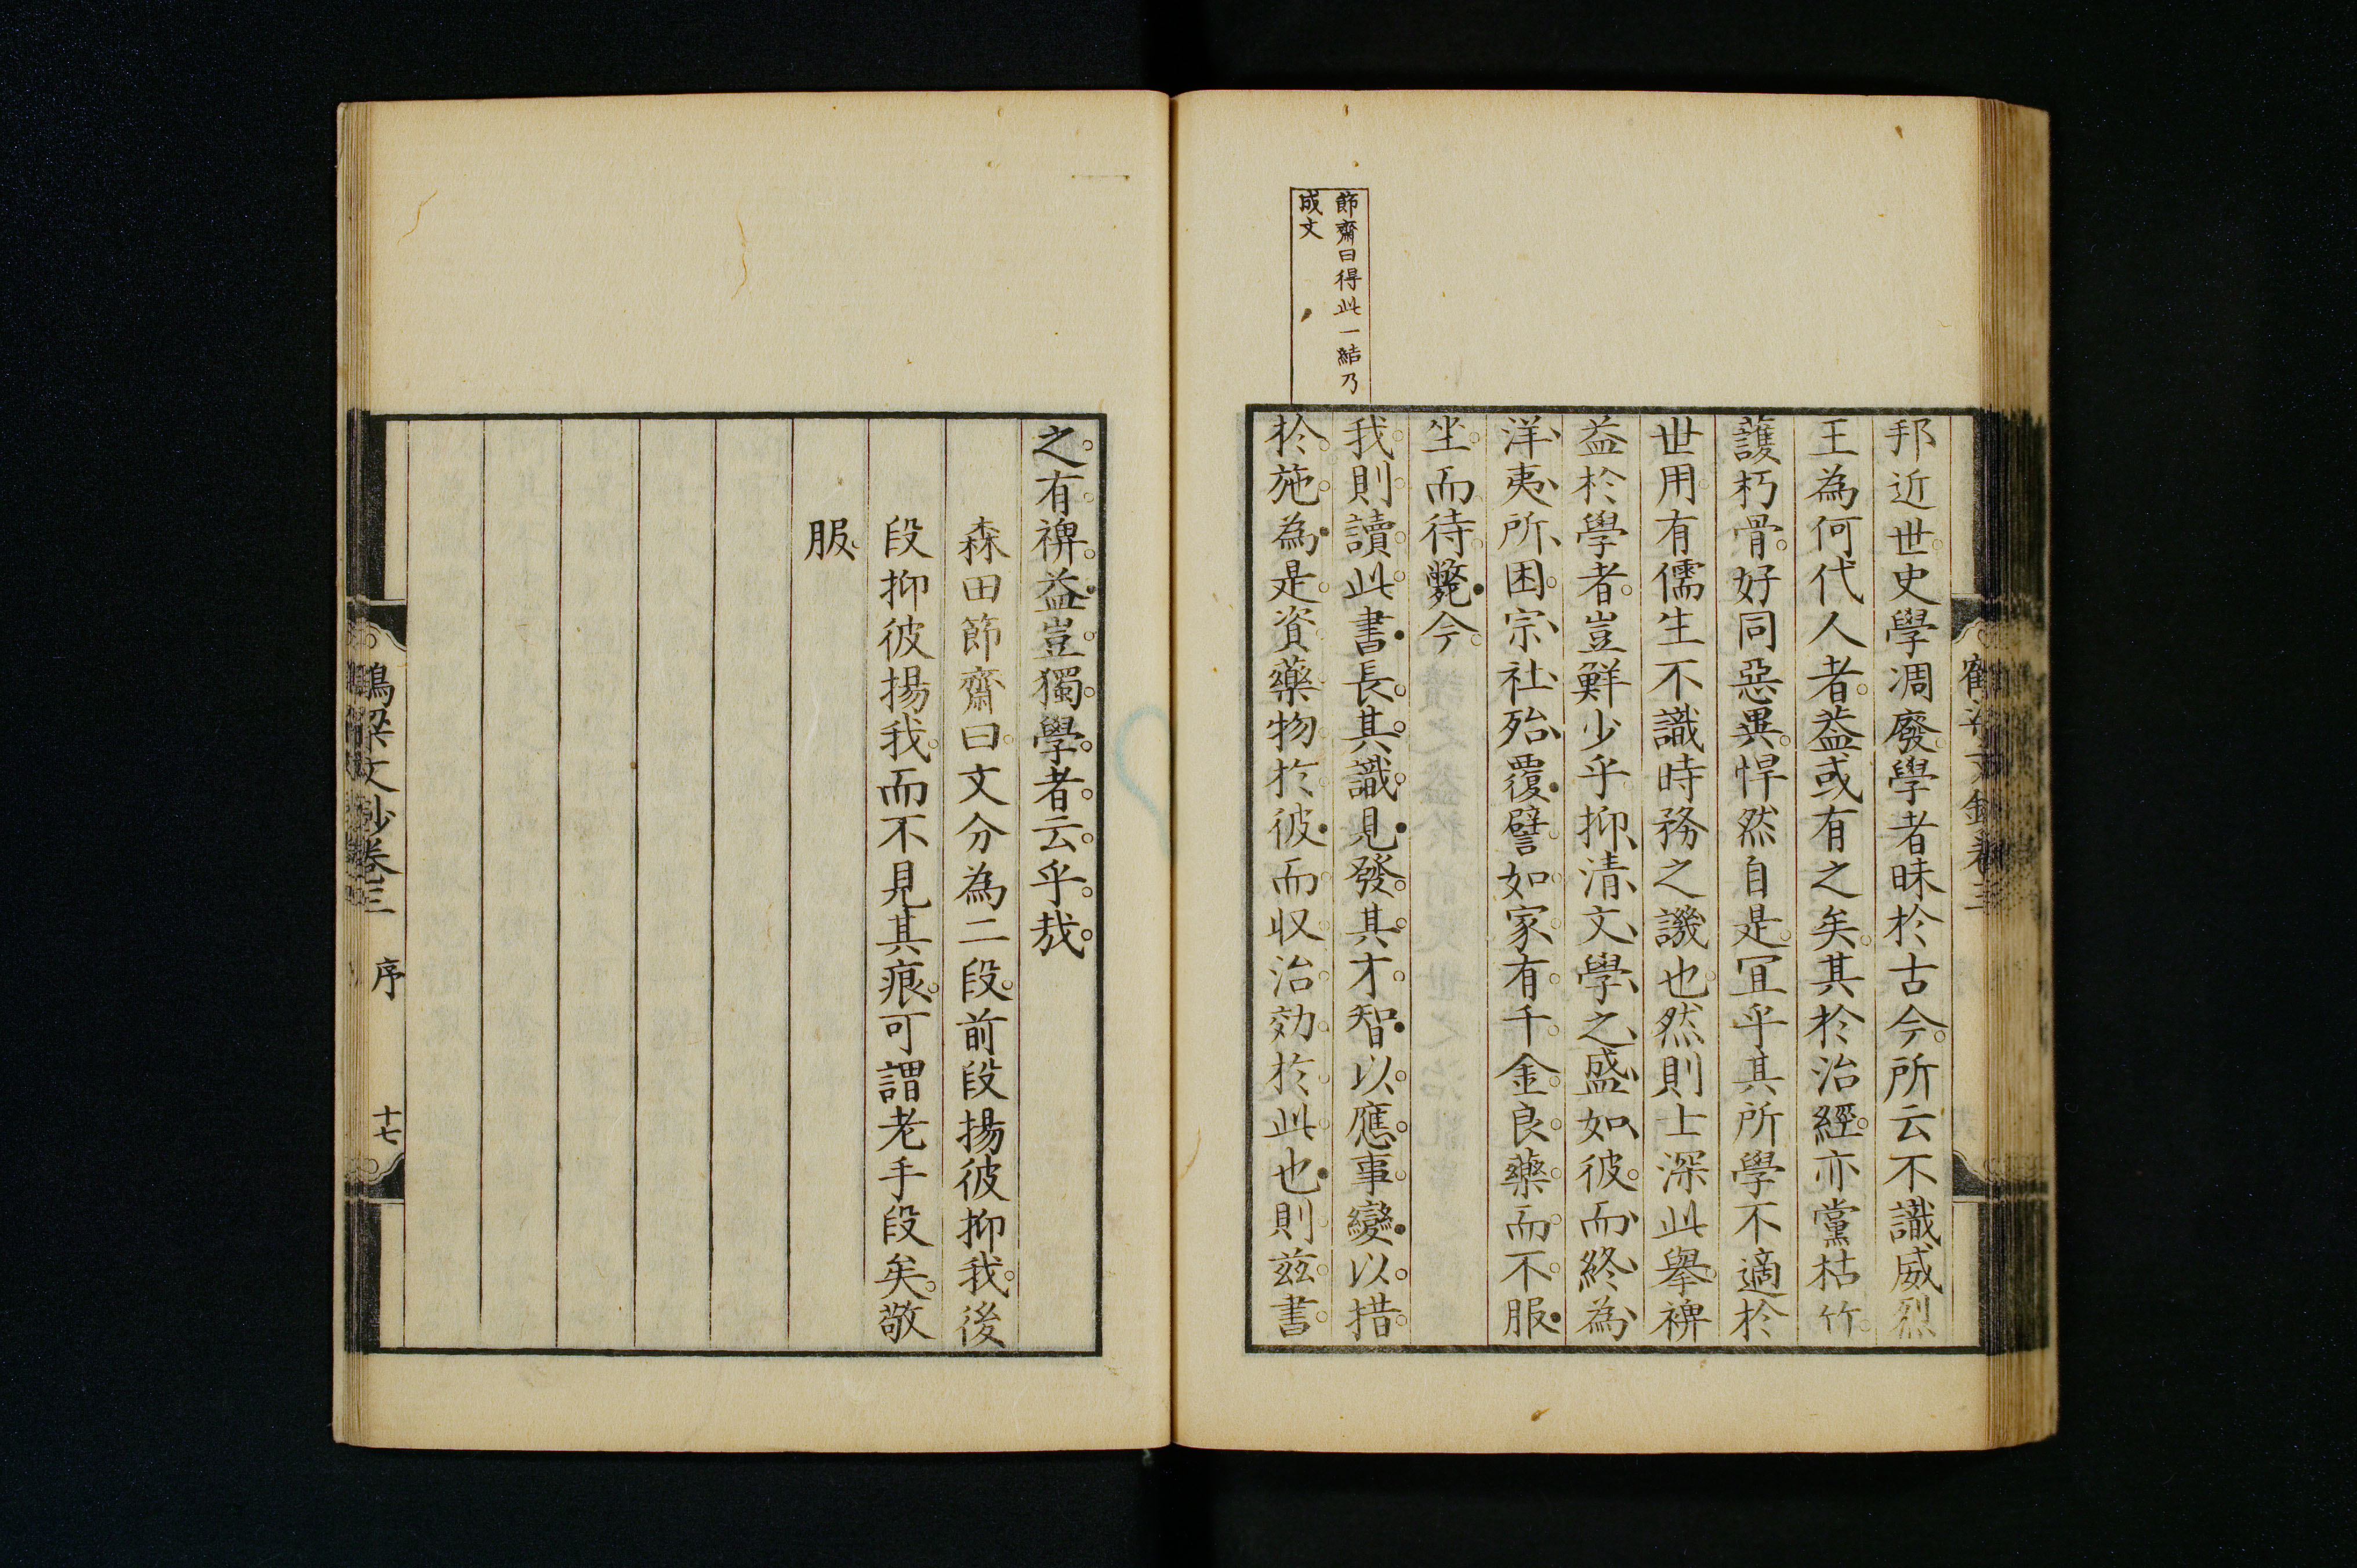 節齋曰得此一結乃
成文
邦近世史學凋廢學者昧於古今所云不識威烈
王為何代人者益或有之矣其於治經亦黨枯竹
護朽骨好同惡異悍然自是冝乎其所學不適於
世用有儒生不識時務之譏也然則士深此舉裨
益於學者豈鮮少乎抑清文學之盛如彼而終為
洋夷所困宗社殆覆譬如家有千金良藥而不服
坐而待斃今
我則讀此書長其識見發其才智以應事變以措
於施為是資藥物於彼而収治効於此也則茲書
之有裨益豈獨學者云乎哉
森田節齋曰文分為二段前段揚彼抑我後
段抑彼揚我而不見其痕可謂老手段矣敬
服
文鈔卷三
序
十七